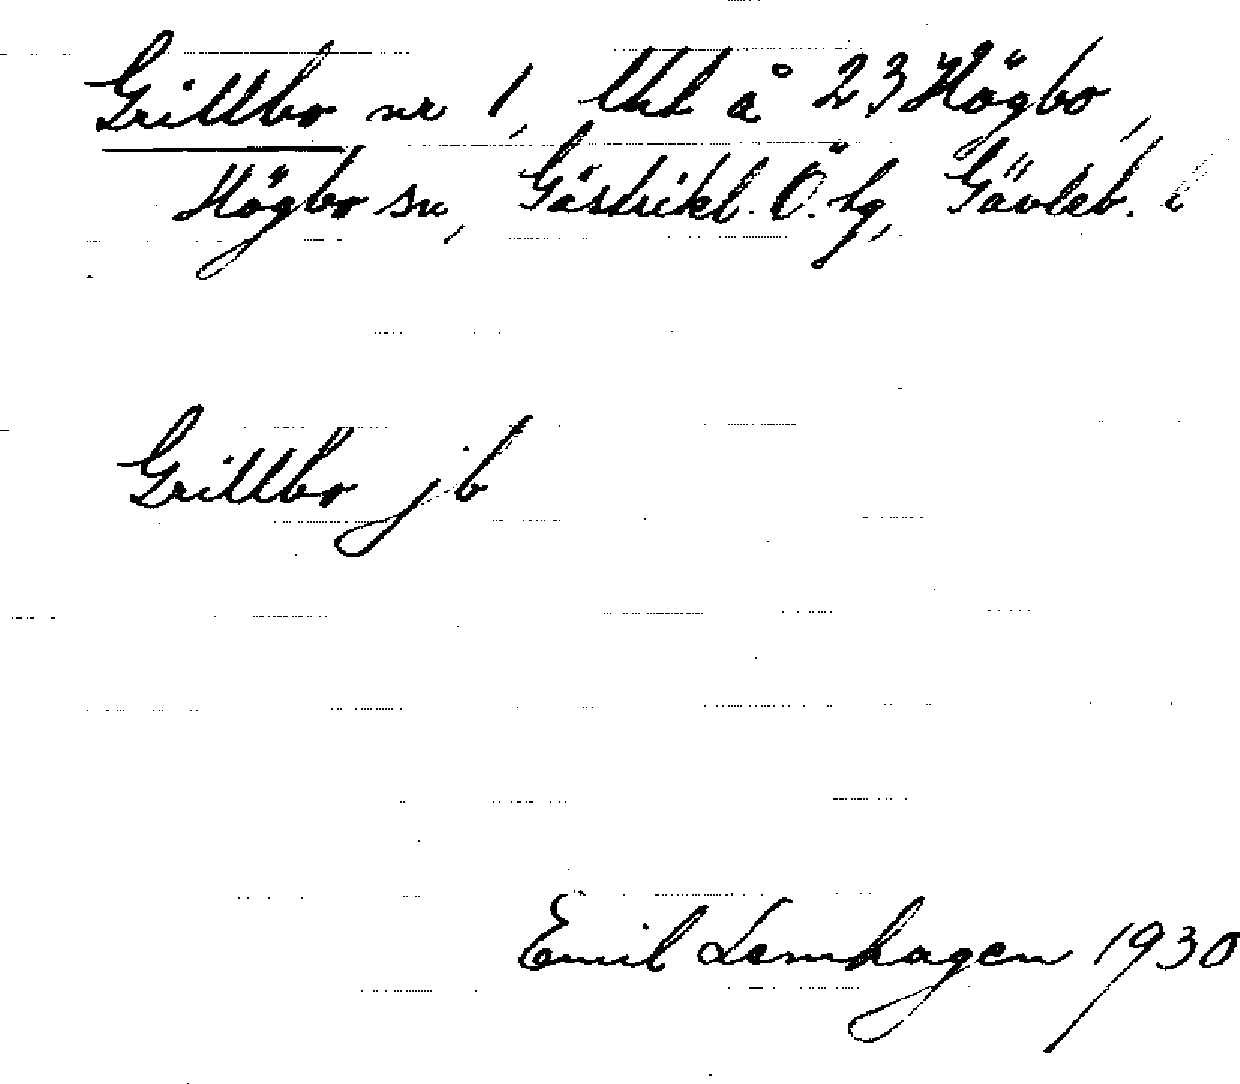 Grillbo nr 1, tkt å 23 Högbo,
Högbo sn, Gästrikl. Ö. tg, Gävleb. l
Grillbo jb
Emil Lemhagen 1930